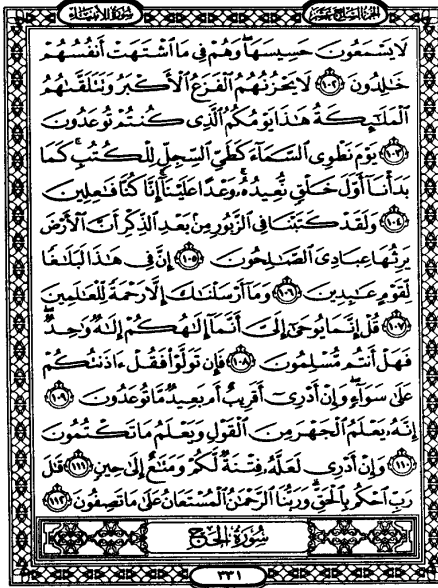 سُورَةُ الأَنبيَاء
الجُزءُ السَّابِعَ عَشَرَ
لَا يَسْمَعُونَ حَسِيسَهَا ۖ وَهُمْ فِي مَا اشْتَهَتْ أَنفُسُهُمْ
خَالِدُونَ ١٠٢ لَا يَحْزُنُهُمُ الْفَزَعُ الْأَكْبَرُ وَتَتَلَقَّاهُمُ
الْمَلَائِكَةُ هَٰذَا يَوْمُكُمُ الَّذِي كُنتُمْ تُوعَدُونَ
١٠٣ يَوْمَ نَطْوِي السَّمَاءَ كَطَيِّ السِّجِلِّ لِلْكُتُبِ ۚ كَمَا
بَدَأْنَا أَوَّلَ خَلْقٍ نُّعِيدُهُ ۚ وَعْدًا عَلَيْنَا ۚ إِنَّا كُنَّا فَاعِلِينَ
١٠٤ وَلَقَدْ كَتَبْنَا فِي الزَّبُورِ مِنْ بَعْدِ الذِّكْرِ أَنَّ الْأَرْضَ
يَرِثُهَا عِبَادِيَ الصَّالِحُونَ ١٠٥ إِنَّ فِي هَٰذَا لَبَلَاغًا
لِّقَوْمٍ عَابِدِينَ ١٠٦ وَمَا أَرْسَلْنَاكَ إِلَّا رَحْمَةً لِّلْعَالَمِينَ
١٠٧ قُلْ إِنَّمَا يُوحَىٰ إِلَيَّ أَنَّمَا إِلَٰهُكُمْ إِلَٰهٌ وَاحِدٌ ۖ
فَهَلْ أَنتُم مُّسْلِمُونَ ١٠٨ فَإِن تَوَلَّوْا فَقُلْ ءَاذَنتُكُمْ
عَلَىٰ سَوَاءٍ ۖ وَإِنْ أَدْرِي أَقَرِيبٌ أَم بَعِيدٌ مَّا تُوعَدُونَ ١٠٩
إِنَّهُ يَعْلَمُ الْجَهْرَ مِنَ الْقَوْلِ وَيَعْلَمُ مَا تَكْتُمُونَ
١١٠ وَإِنْ أَدْرِي لَعَلَّهُ فِتْنَةٌ لَّكُمْ وَمَتَاعٌ إِلَىٰ حِينٍ ١١١ قَٰلَ
رَبِّ احْكُم بِالْحَقِّ ۗ وَرَبُّنَا الرَّحْمَٰنُ الْمُسْتَعَانُ عَلَىٰ مَا تَصِفُونَ ١١٢
سُورَةُ الحَجّ
٣٣١